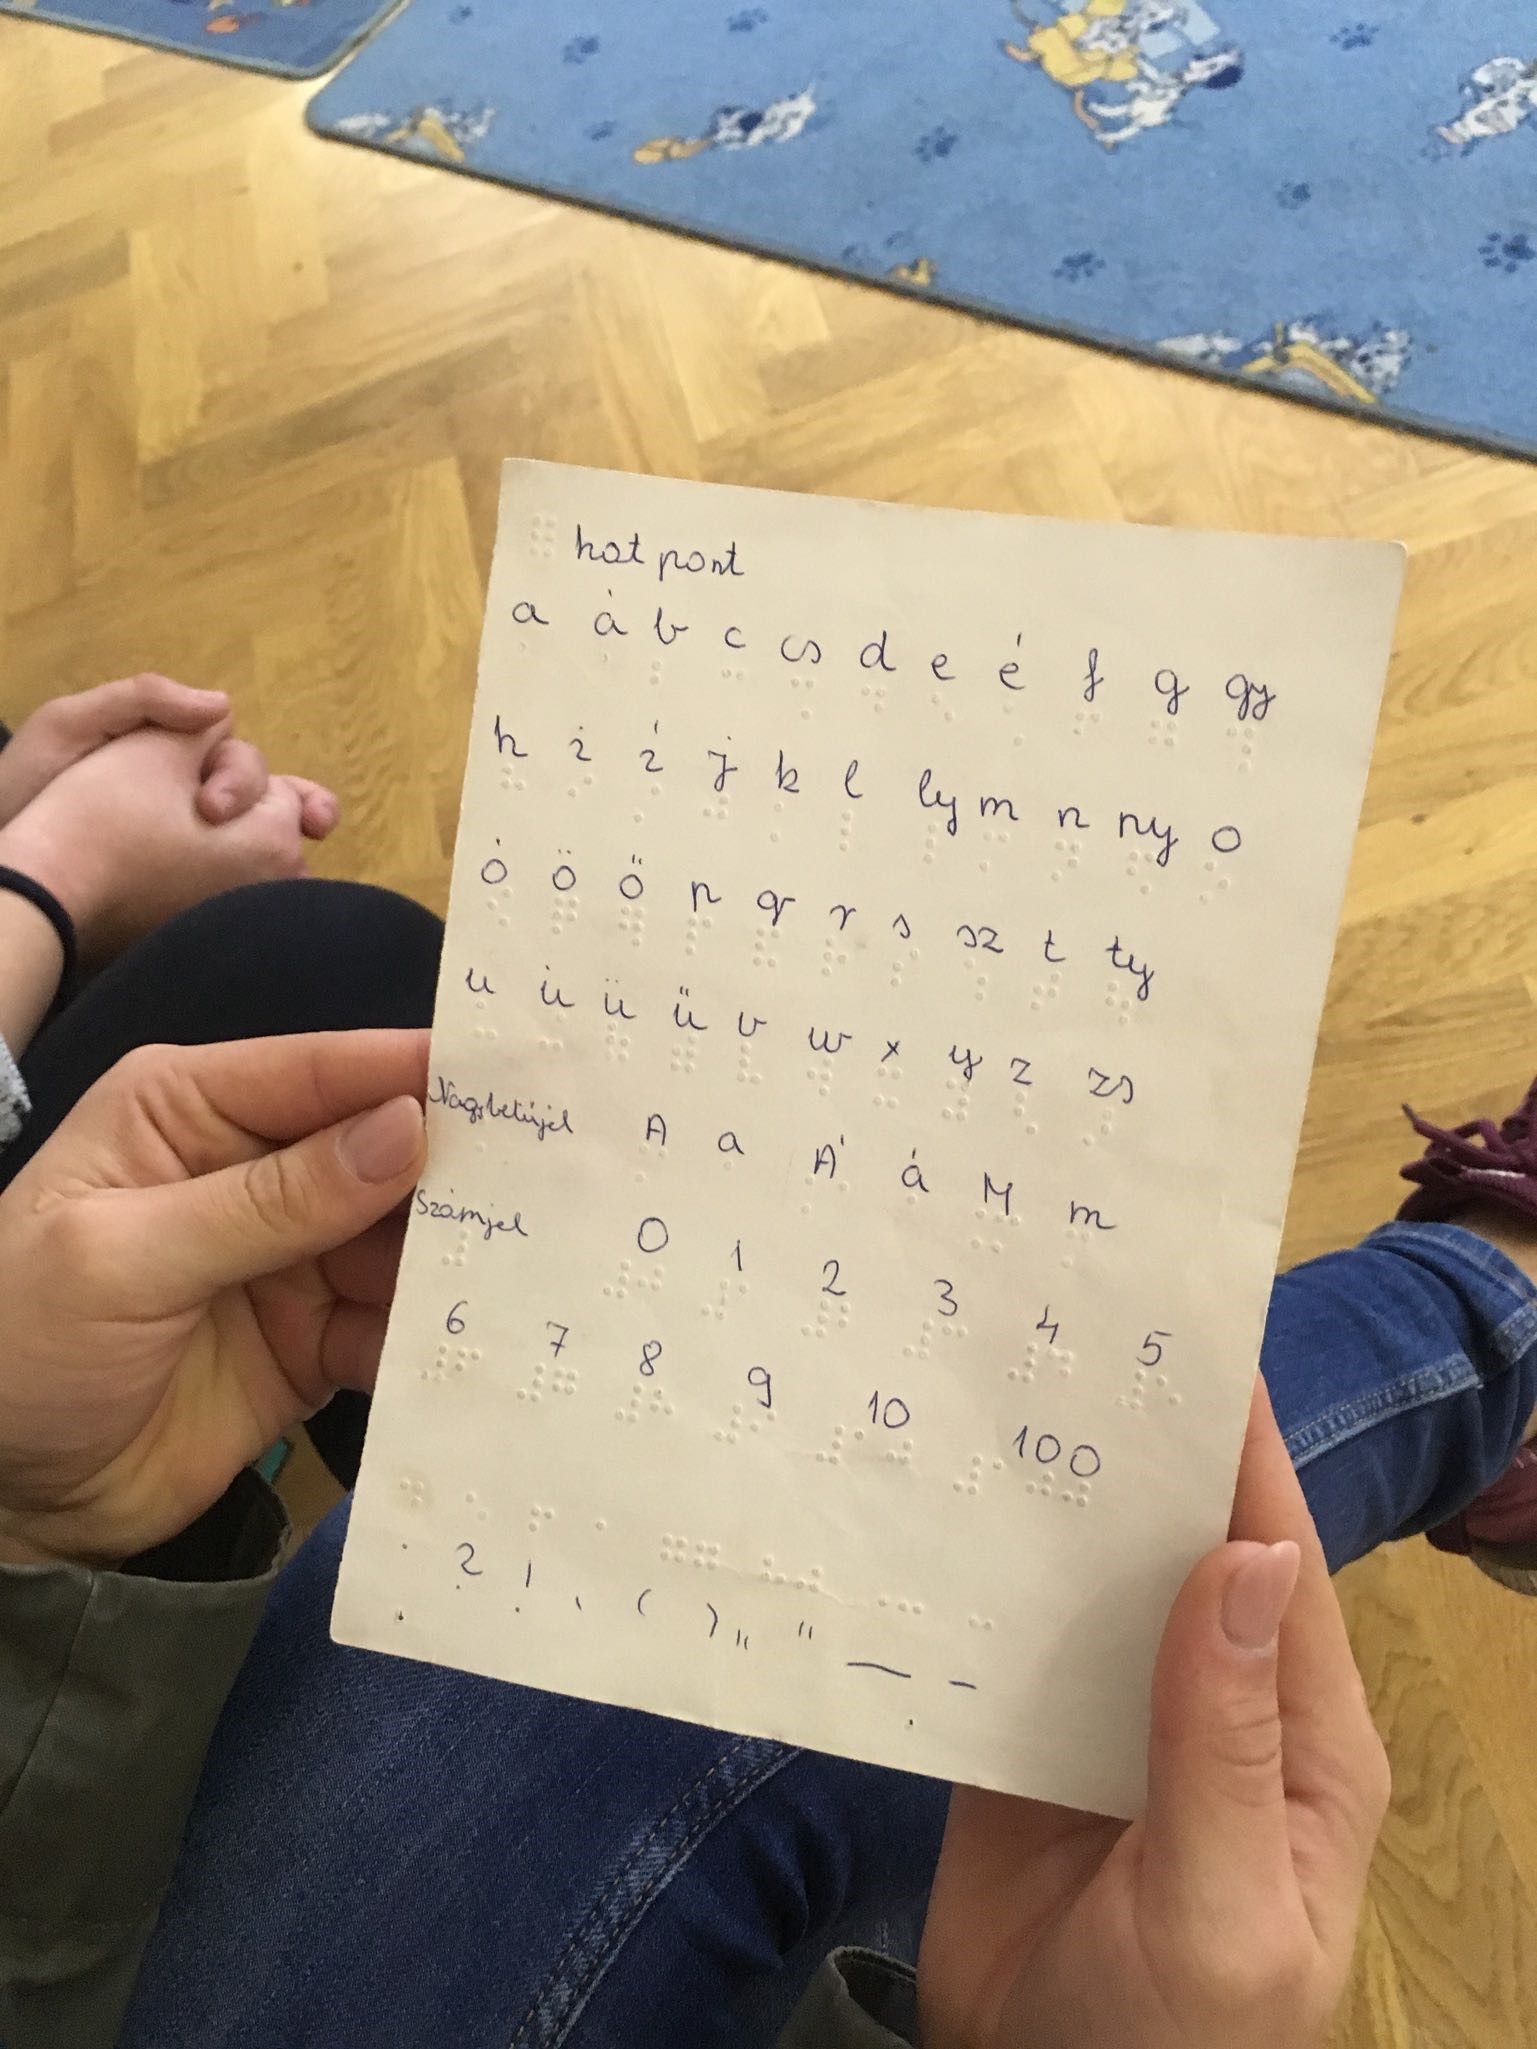 hat pont
a á b c cs d e é f g gy
h i í j k l ly m n ny o
ó ö ő p q r s sz t ty
u ú ü ű v w x y z zs
Nagybetűjel A a Á á M m
Számjel 0 1 2 3 4 5
6 7 8 9 10 100
. ? ! , ( ) „ " — -